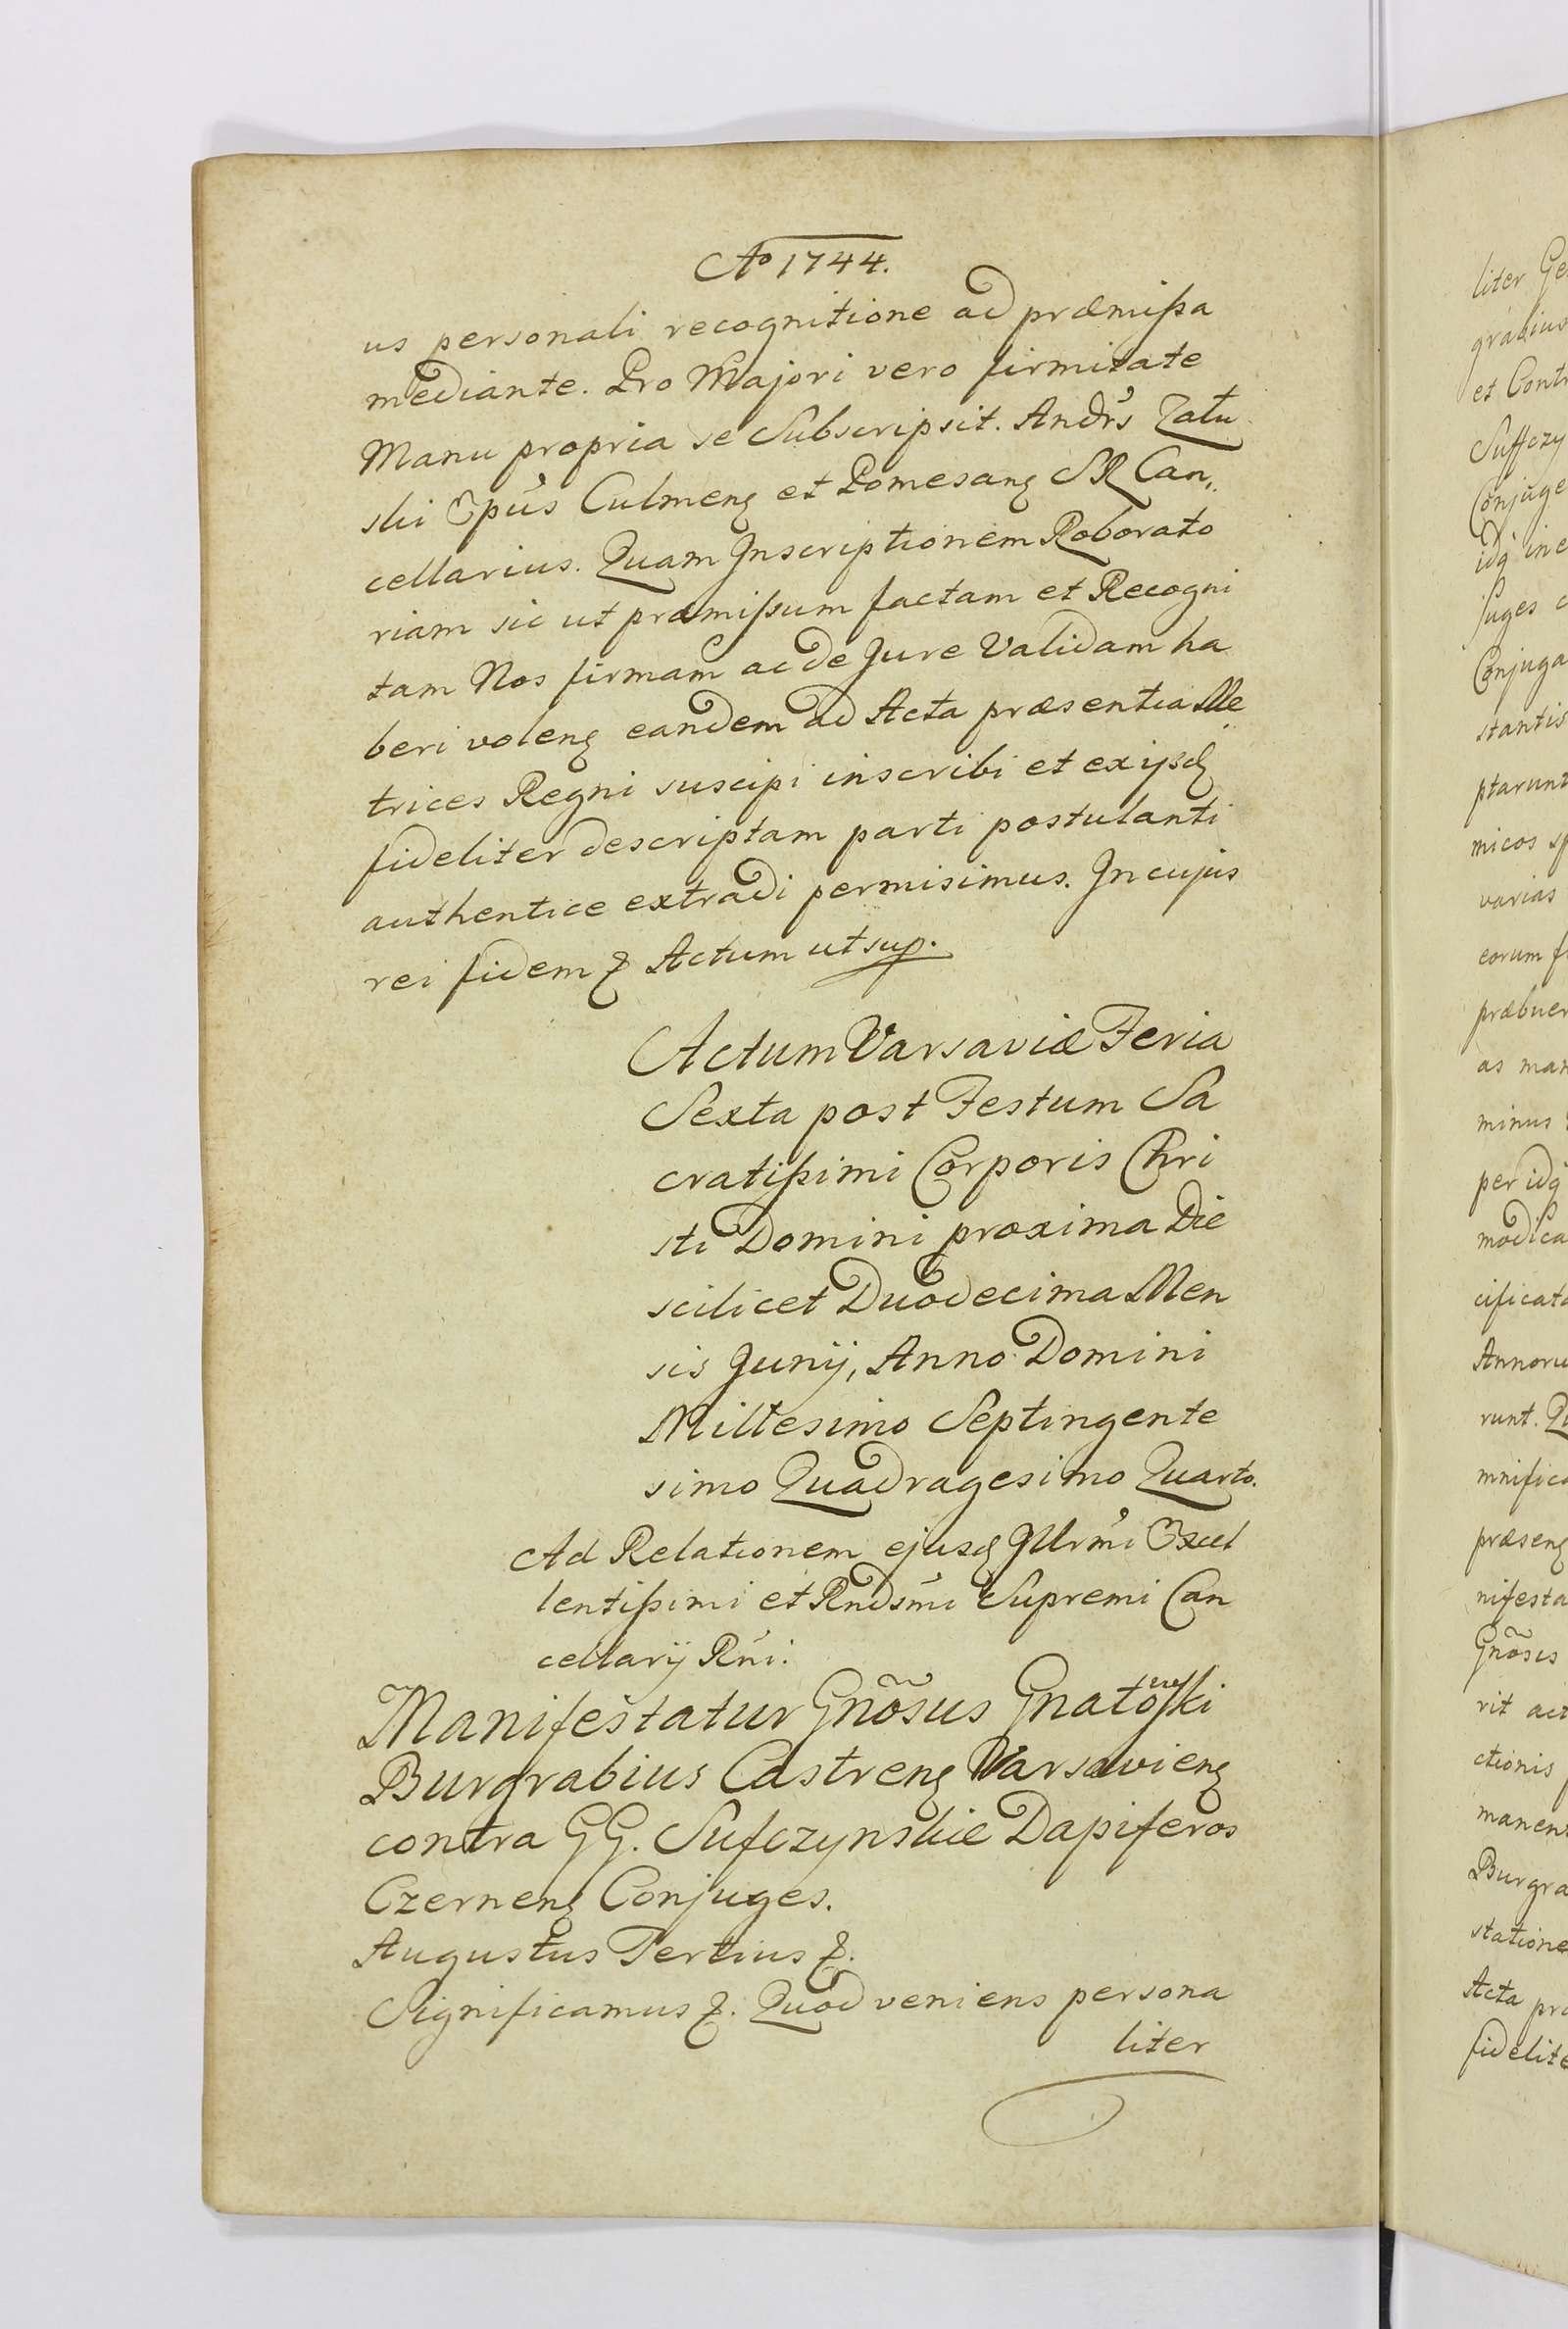 Ao 1744.
us personali recognitione ad præmissa
mediante. Pro Majori vero firmitate
Manu propria se Subscripsit. Andrs Zału
ski Epus Culmens et Pomesans SR Can„
cellarius. Quam Inscriptionem Roborato
riam sic ut præmissum factam et Recogni
tam Nos firmam ac de Jure Validam ha
beri volens eandem ad Acta præsentia Me
trices Regni suscipi inscribi et ex ijsd
fideliter descriptam parti postulanti
authentice extradi permisimus. In cujus
rei fidem & Actum ut sup.
Actum Varsaviæ Feria
Sexta post Festum Sa
cratissimi Corporis Chri
sti Domini proxima Die
scilicet Duodecima Men
sis Junij, Anno Domini
Millesimo Septingente
simo Quadragesimo Quarto.
Ad Relationem ejusd Illrmi Excel
lentissimi et Rndsmi Supremi Can
cellarij Rni.
Manifestatur Gnõsus Gnatowski
Burgrabius Castrens Varsaviens
contra GG. Sufczynskie Dapiferos
Czernens Conjuges.
Augustus Tertius &.
Significamus &. Quod veniens persona
liter
liter Ge
grabius
et Contr
Suffczy
Conjuge
idq ine
juges c
Conjuga
stantis
ptarunt
micos sp
varias
eorum f
præbuer
as man
minus
per idq
modica
cificato
Annoru
runt. Qu
mnifica
præsens
nifesta
Gnõsis
rit act
ctionis
manent
Burgra
statione
Acta pro
fidelite